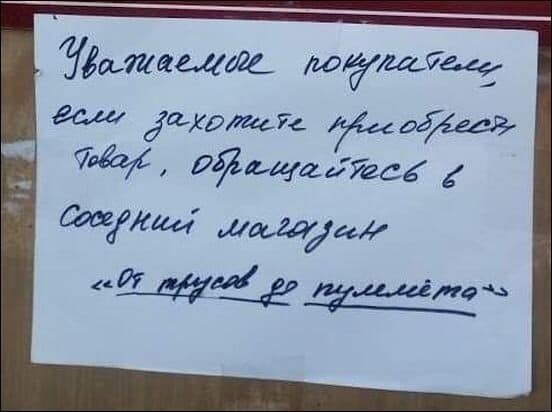 Уважаемые покупатели,
если захотите приобрести
товар, обращайтесь в
соседний магазин
"От трусов до пулемёта"